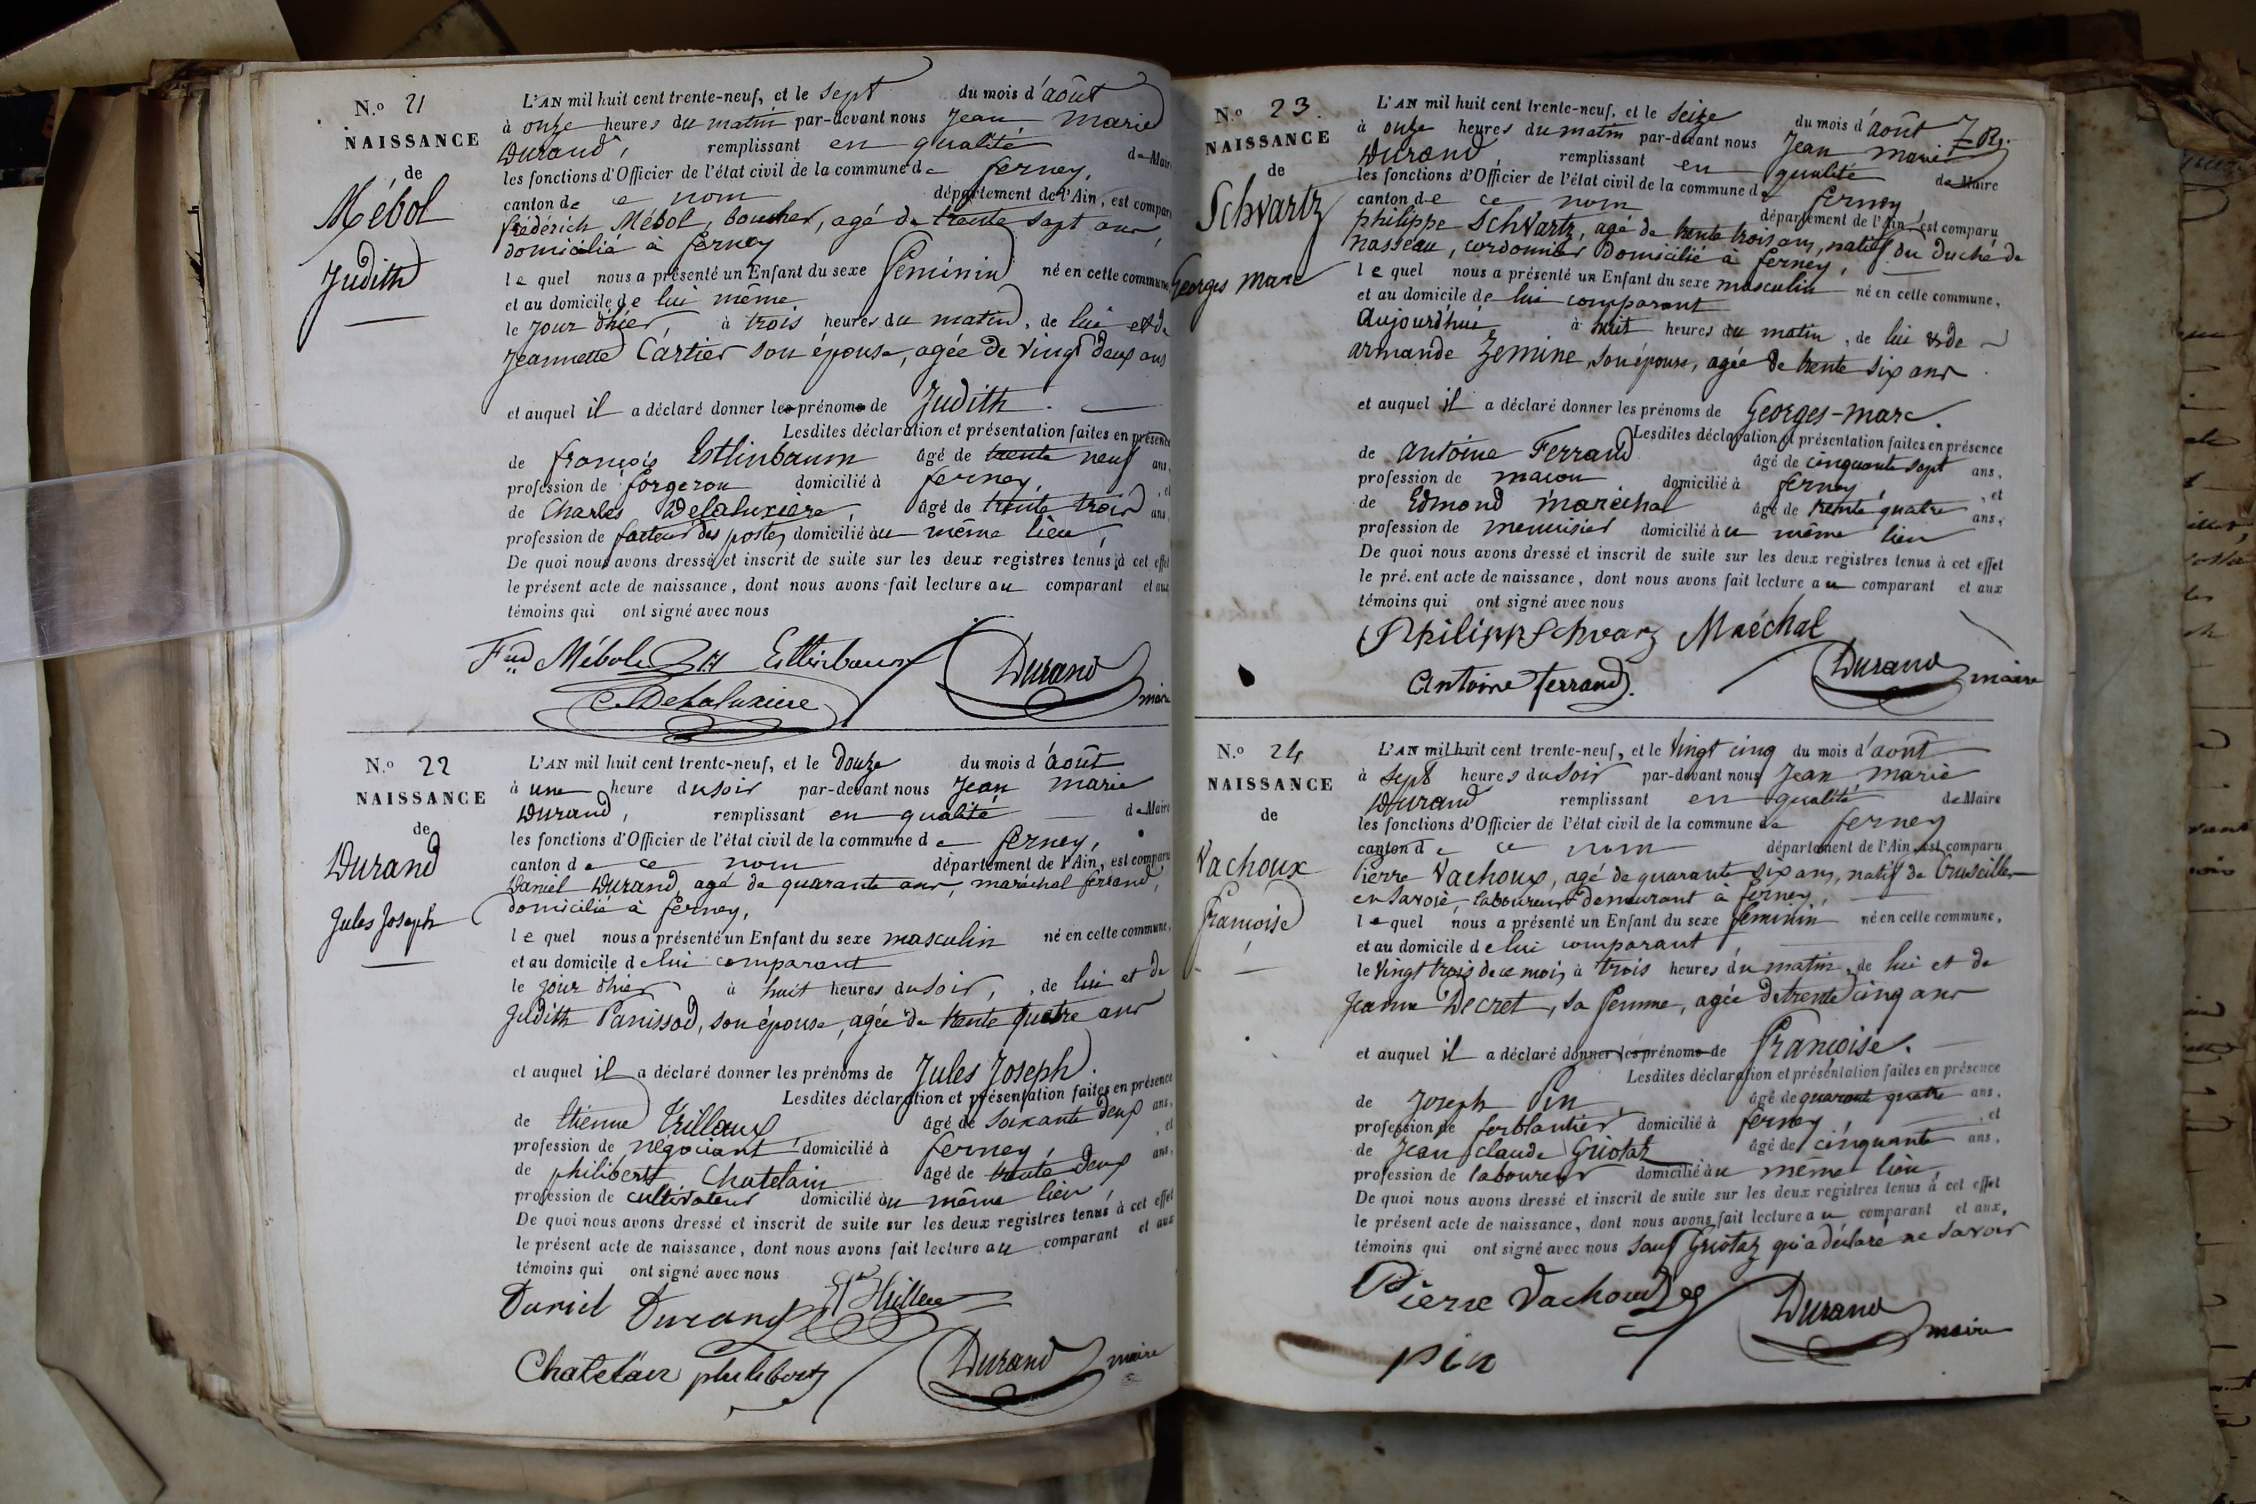 N.o 21
NAISSANCE
de
Mébol
Judith
L'AN mil huit cent trente-neuf, et le sept du mois d'août
à onze heures du matin par-devant nous Jean Marie
Durand, remplissant en qualité de Maire
les fonctions d'Officier de l'état civil de la commune de ferney,
canton de ce nom département de l'Ain, est comparu
frédérich Mébol, boucher, agé de trente sept ans,
domicilié à ferney
lequel nous a présenté un Enfant du sexe féminin né en cette commune,
et au domicile de lui même
le jour d'hier, à trois heures du matin, de lui et de
Jeannette Cartier son épouse, agée de vingt deux ans
et auquel il a déclaré donner les prénoms de Judith.
Lesdites déclaration et présentation faites en présence
de françois Estlinbaum âgé de trente neuf ans,
profession de forgeron domicilié à ferney, et
de Charles Delaluxière, âgé de trente trois ans,
profession de facteur des postes, domicilié au même lieu,
De quoi nous avons dressé et inscrit de suite sur les deux registres tenus à cet effet
le présent acte de naissance, dont nous avons fait lecture au comparant et aux
témoins qui ont signé avec nous
Mébol Estlinbaum Durand
C. Delaluxiere maire
N.o 22
NAISSANCE
de
Durand
Jules Joseph
L'AN mil huit cent trente-neuf, et le douze du mois d'août
à une heure du soir par-devant nous Jean marie
Durand, remplissant en qualité de Maire
les fonctions d'Officier de l'état civil de la commune de ferney,
canton de ce nom département de l'Ain, est comparu
Daniel Durand, agé de quarante ans, maréchal ferrand,
domicilié à ferney,
lequel nous a présenté un Enfant du sexe masculin né en cette commune,
et au domicile de lui comparant
le jour d'hier à huit heures du soir, de lui et de
Judith Panissod, son épouse, agée de trente quatre ans
et auquel il a déclaré donner les prénoms de Jules Joseph.
Lesdites déclaration et présentation faites en présence
de Etienne âgé de soixante deux ans,
profession de négociant domicilié à ferney, et
de philibert Chatelain âgé de trente deux ans,
profession de cultivateur domicilié au même lieu,
De quoi nous avons dressé et inscrit de suite sur les deux registres tenus à cet effet
le présent acte de naissance, dont nous avons fait lecture au comparant et aux
témoins qui ont signé avec nous
Daniel Durand
Chatelain philibert Durand maire
N.o 23.
NAISSANCE
de
Schvartz
Georges Marc
L'AN mil huit cent trente-neuf, et le seize du mois d'août
à onze heures du matin par-devant nous Jean marie
Durand, remplissant en qualité de Maire
les fonctions d'Officier de l'état civil de la commune de ferney,
canton de ce nom département de l'Ain, est comparu
philippe Schvartz, agé de trente trois ans, natif du Duché de
nasseau, cordonnier domicilié à ferney,
lequel nous a présenté un Enfant du sexe masculin né en cette commune,
et au domicile de lui comparant
aujourd'hui à huit heures du matin, de lui & de
armande Zemine, son épouse, agée de trente six ans
et auquel il a déclaré donner les prénoms de Georges-marc.
Lesdites déclaration et présentation faites en présence
de antoine Ferrand âgé de cinquante sept ans,
profession de maçon domicilié à ferney, et
de Edmond maréchal âgé de trente quatre ans,
profession de menuisier domicilié au même lieu
De quoi nous avons dressé et inscrit de suite sur les deux registres tenus à cet effet
le présent acte de naissance, dont nous avons fait lecture au comparant et aux
témoins qui ont signé avec nous
Philipp Schvarz Maréchal
Antoine ferrand. Durand maire
N.o 24
NAISSANCE
de
Vachoux
françoise
L'AN mil huit cent trente-neuf, et le vingt cinq du mois d'août
à sept heures du soir par-devant nous Jean marie
Durand remplissant en qualité de Maire
les fonctions d'Officier de l'état civil de la commune de ferney
canton de ce nom département de l'Ain, est comparu
Pierre Vachoux, agé de quarante six ans, natif de Cruseilles
en Savoie, laboureur demeurant à ferney,
lequel nous a présenté un Enfant du sexe féminin né en cette commune,
et au domicile de lui comparant
le vingt trois de ce mois, à trois heures du matin, de lui et de
Jeanne Decret, sa femme, agée de trente cinq ans
et auquel il a déclaré donner les prénoms de françoise.
Lesdites déclaration et présentation faites en présence
de Joseph Pin, âgé de quarante quatre ans,
profession de ferblantier domicilié à ferney, et
de Jean claude Griotaz âgé de cinquante ans,
profession de laboureur domicilié au même lieu,
De quoi nous avons dressé et inscrit de suite sur les deux registres tenus à cet effet
le présent acte de naissance, dont nous avons fait lecture au comparant et aux
témoins qui ont signé avec nous sauf Griotaz qui a déclaré ne savoir
Pierre Vachoux Durand maire
pin